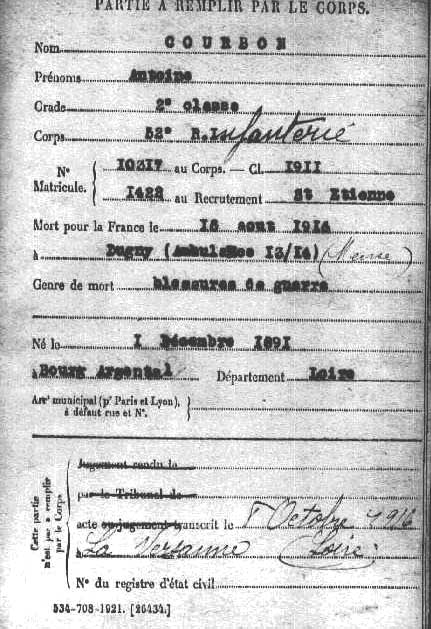 PARTIE À REMPLIR PAR LE CORPS.
Nom COURBON
Prénoms Antoine
Grade 2e classe
Corps 52e R.Infanterie
N° Matricule. 10317 au Corps. — Cl. 1911
1422 au Recrutement St Etienne
Mort pour la France le août 1916
à Dugny (Ambulance 13/14) (Meuse)
Genre de mort blessures de guerre
Né le 1 Décembre 1891
à Bourg Argental Département Loire
Arrt municipal (pr Paris et Lyon),
à défaut rue et N°.
Cette partie
n'est pas à remplir
par le Corps
Jugement rendu le
par le Tribunal de
acte ou jugement transcrit le Octobre 1916
à La Versanne (Loire)
N° du registre d'état civil
534-708-1921. [26434.]